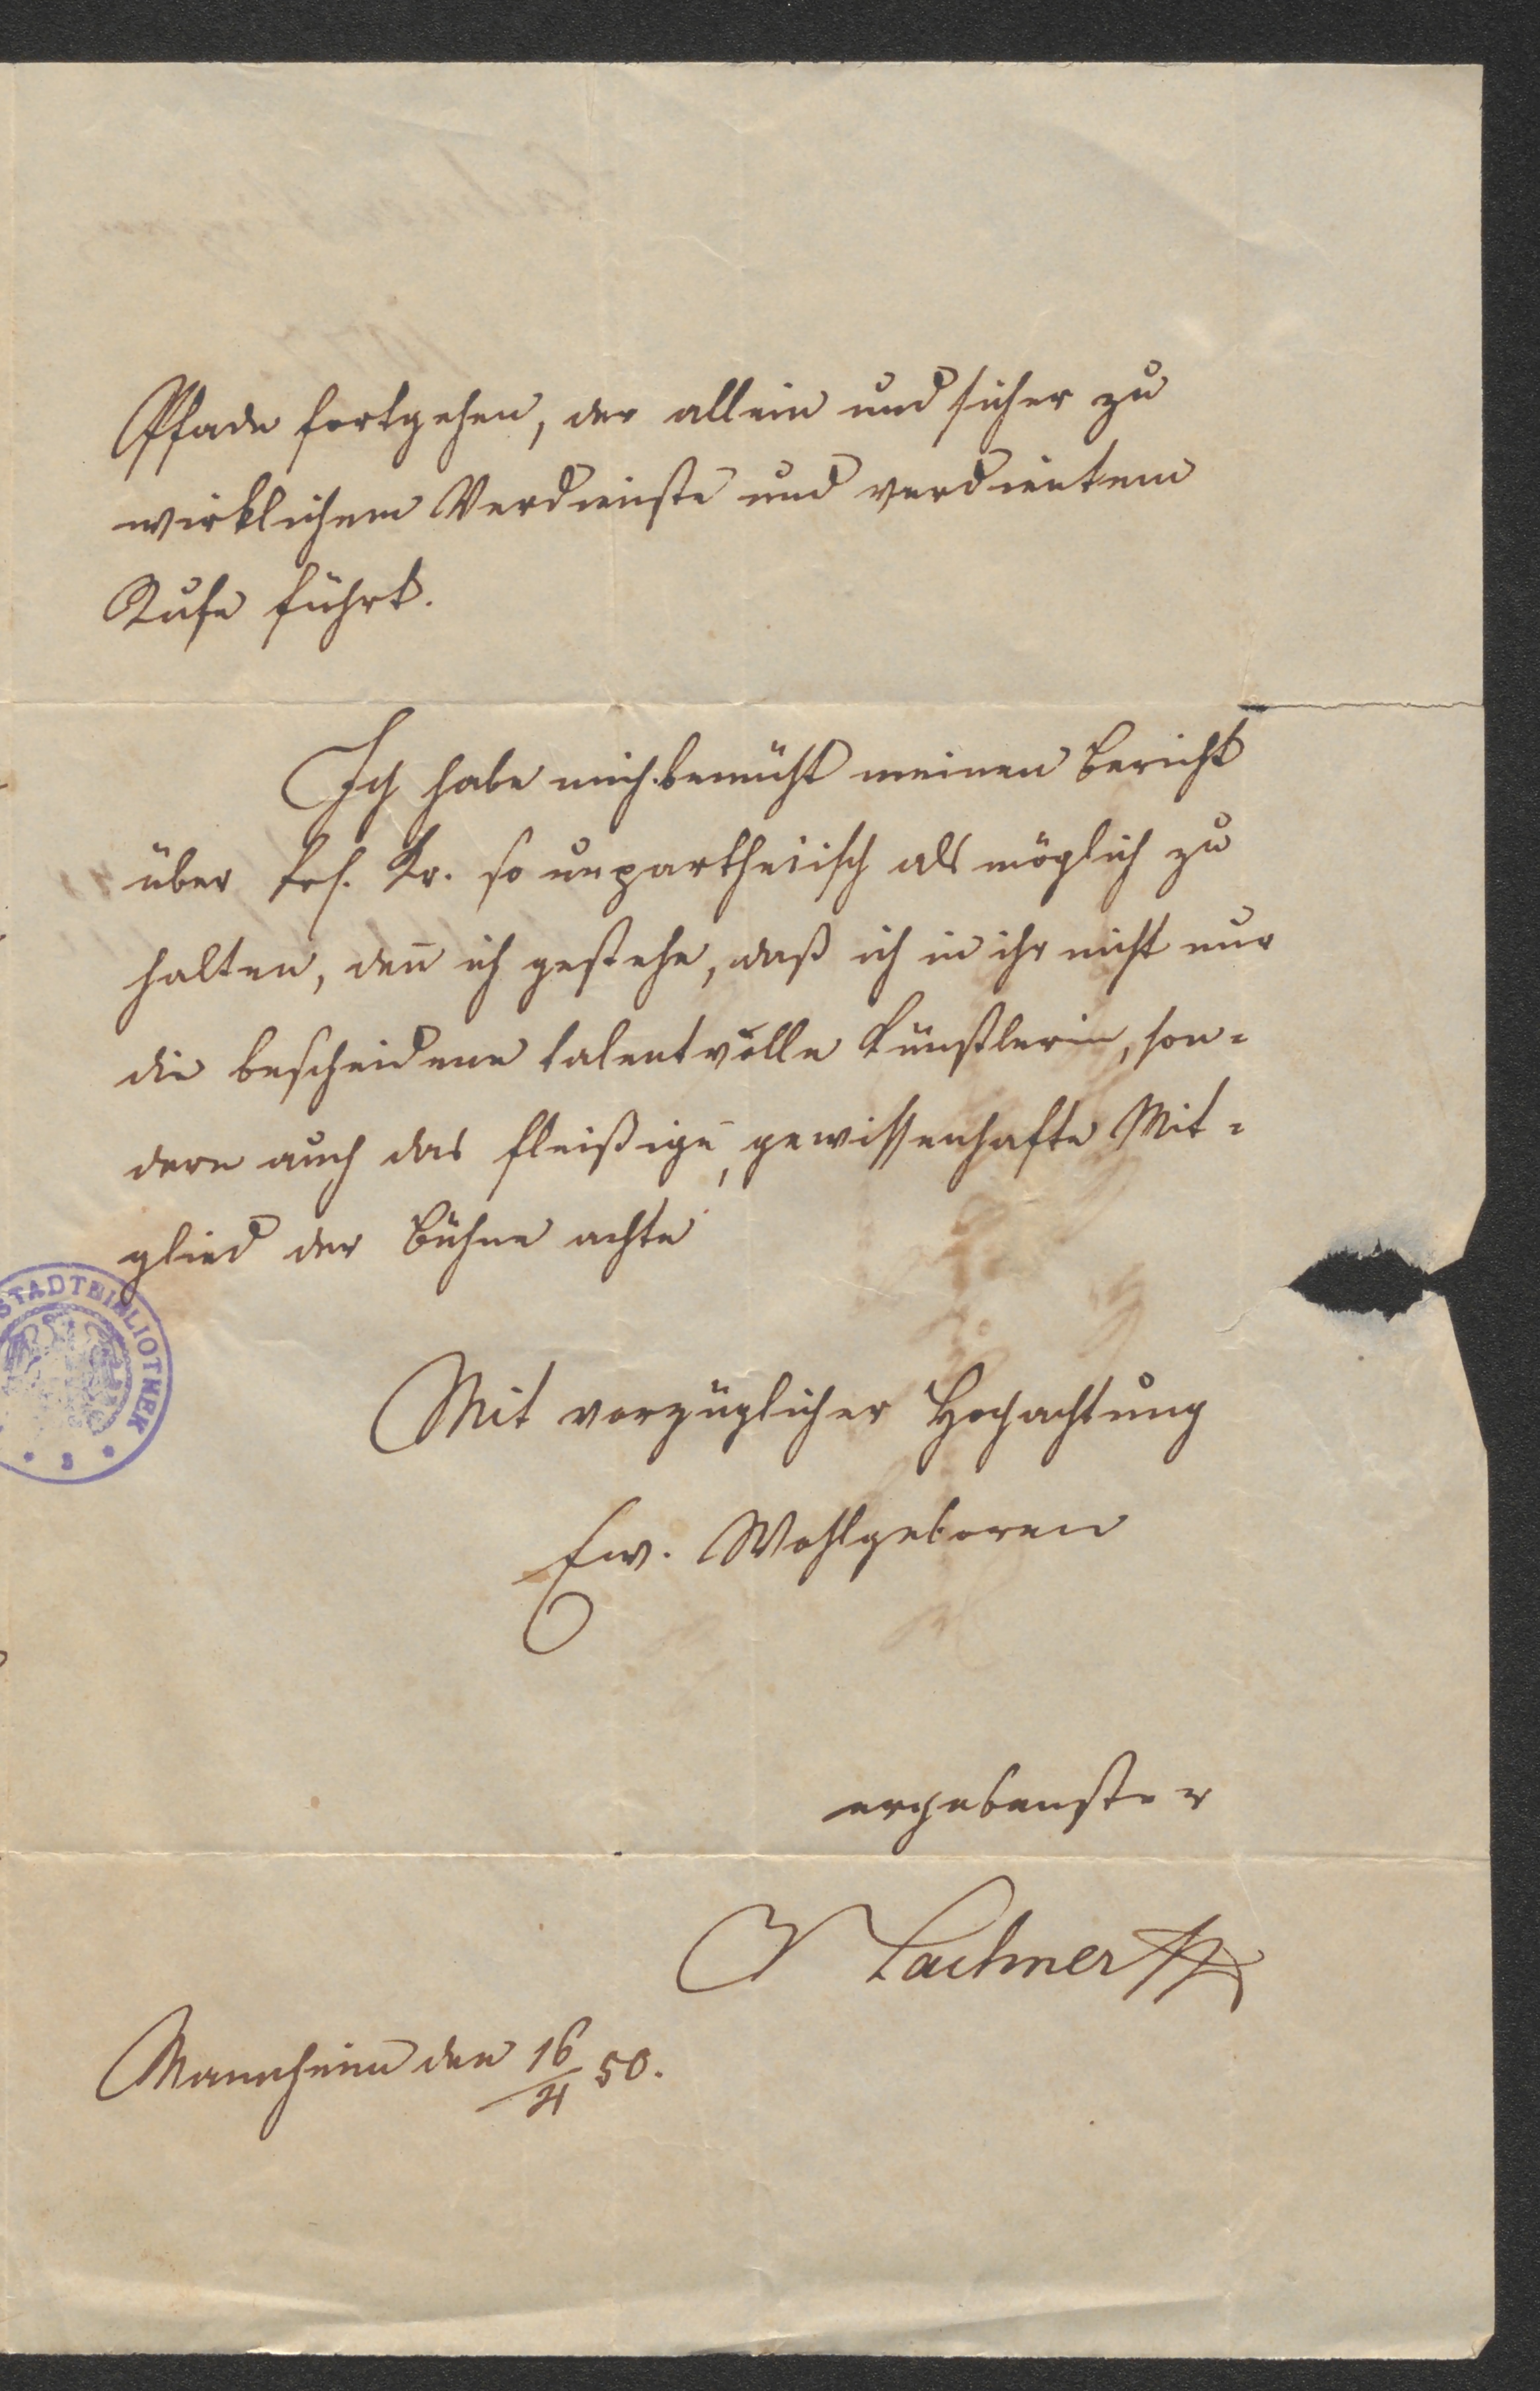 Pfade fortgehen, der allein und sicher zu
wirklichem Verdienste und verdientem
Rufe führt.
Ich habe mich bemüht meinen Bericht
über Frl. Kr. so unpartheiisch als möglich zu
halten, deñ ich gestehe, daß ich in ihr nicht nur
die bescheidene talentvolle Künstlerin, son=
dern auch das fleißige, gewissenhafte Mit=
glied der Bühne achte
STADTBIBLIOTHEK
Mit vorzüglicher Hochachtung
Ew. Wohlgeboren
ergebenster
V Lachner
Mannheim den 16/4 50.